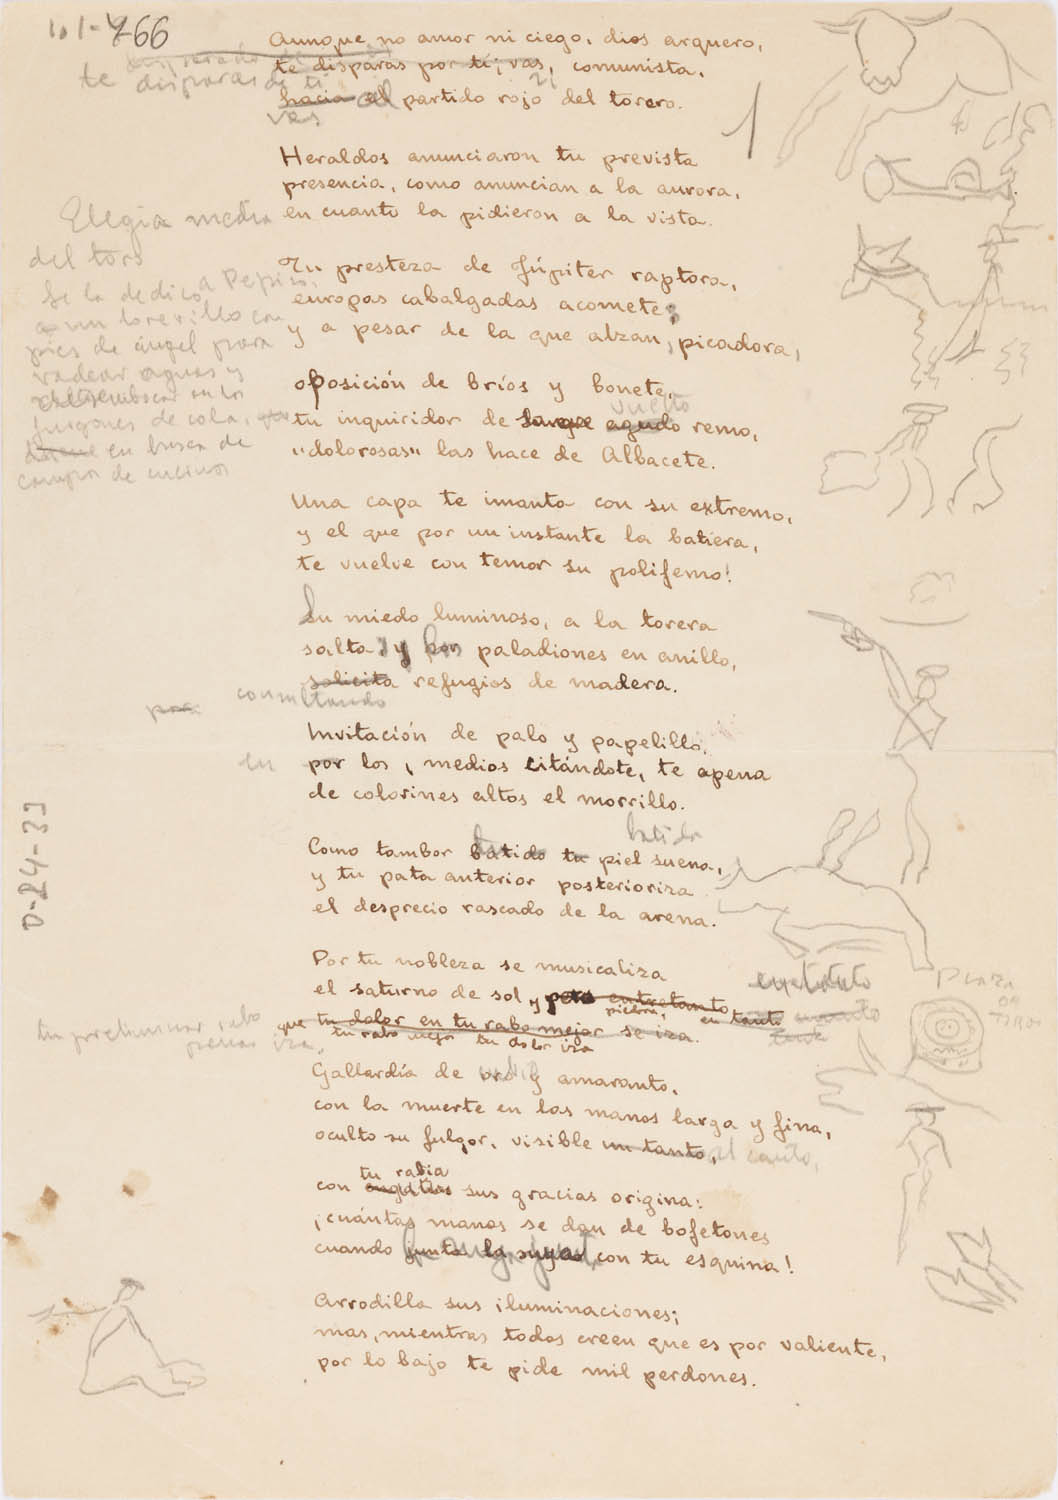 101-4
766
Aunque no amor ni ciego, dios arquero,
te disparas por tí; vas, comunista,
te disparas de ti
hacia el partido rojo del torero.
vas al
Heraldos anunciaron tu prevista
presencia, como anuncian a la aurora,
en cuanto la pidieron a la vista.
Elegía media
del toro
Se la dedico a Pepito,
a un torerillo con
pies de ángel para
vadear aguas y
furgones de cola,
en busca de
campos de encinas
Tu presteza de Júpiter raptora,
europas cabalgadas acomete;
y a pesar de la que alzan, picadora,
oposición de bríos y bonete,
vuelto
tu inquiridor de agudo remo,
"dolorosas" las hace de Albacete.
Una capa te imanta con su extremo,
y el que por un instante la batiera,
te vuelve con temor su polifemo!
Su miedo luminoso, a la torera
salta, y con paladiones en anillo,
solicita refugios de madera.
por consultando
Invitación de palo y papelillo,
en por los medios citándote, te apena
de colorines altos el morrillo.
batida
Como tambor batido tu piel suena,
y tu pata anterior posterioriza
el desprecio rascado de la arena.
D-24-33
Por tu nobleza se musicaliza
el saturno de sol y piedra, en tanto
pero entretanto
que tu dolor en tu rabo mejor se iza.
tu rabo mejor tu dolor iza
tu preliminar rabo
penas iza.
Plaza
de
toros
Gallardía de y amaranto,
con la muerte en las manos larga y fina,
oculto su fulgor, visible un tanto,
al canto,
tu rabia
con sus gracias origina:
¡cuántas manos se dan de bofetones
cuando junta la suya con tu esquina!
Arrodilla sus iluminaciones;
mas, mientras todos creen que es por valiente,
por lo bajo te pide mil perdones.